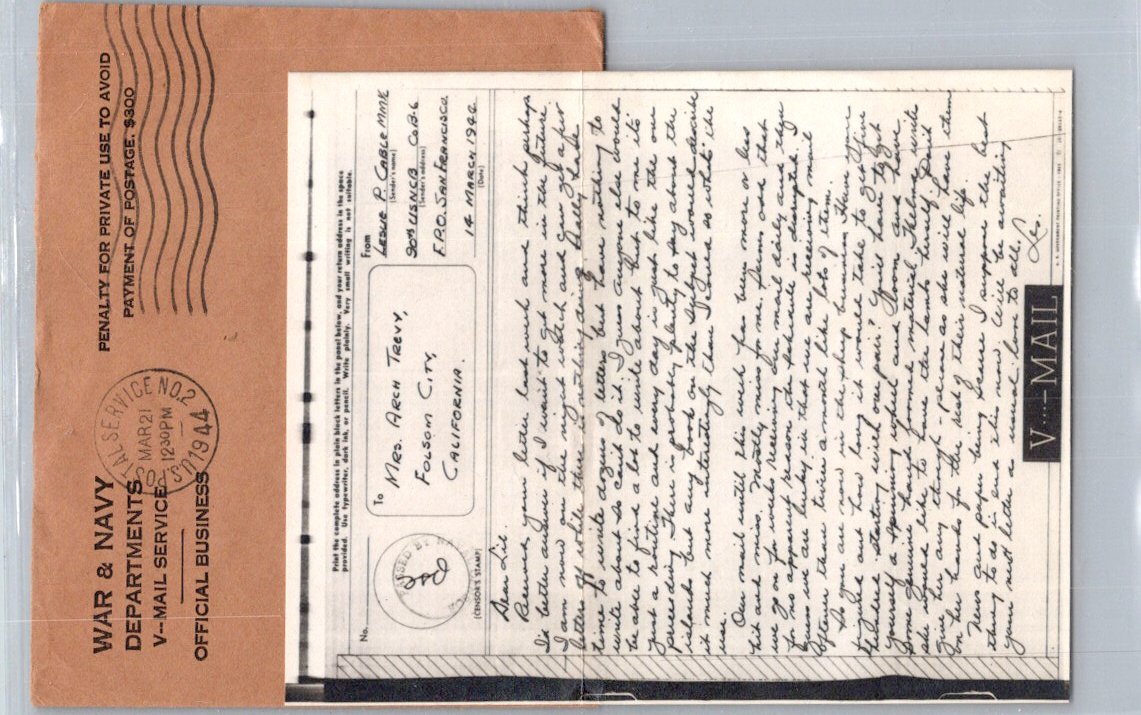 WAR & NAVY
DEPARTMENTS
V--MAIL SERVICE
OFFICIAL BUSINESS
POSTAL SERVICE NO.2
MAR 21
12 30 PM
1944
PENALTY FOR PRIVATE USE TO AVOID
PAYMENT OF POSTAGE, $300
Print the complete address in plain block letters in the panel below, and your return address in the space
provided. Use typewriter, dark ink, or pencil. Write plainly. Very small writing is not suitable.
No.
PASSED BY NAVAL
(CENSOR'S STAMP)
To
MRS. ARCH TREVY,
FOLSOM CITY,
CALIFORNIA.
From
LESLIE P. CABLE MM1C
(Sender's name)
90TH USNCB CO B-6
(Sender's address)
F.P.O. SAN FRANCISCO
14 MARCH 1944
(Date)
Dear Lil.
Received your letter last week and think perhaps
I'd better answer if I want to get more in the future.
I am now on the night watch and can get a few
letters off while there is nothing doing. Really have
time to write dozens of letters but have nothing to
write about so can't do it. I guess anyone else would
be able to find a lot to write about but to me it's
just a routine and every day is just like the one
preceding. There is probably plenty to say about the
islands but any book on the subject would describe
it much more interestingly than I could so what's the
use.
Our mail until this week has been more or less
hit and miss. Mostly miss for me. Seems odd that
we go on for weeks receiving our mail daily and then
for no apparent reason the schedule is disrupted. I
guess we are lucky in that we are receiving mail
oftener than twice a month like lots of them.
So you are now in the sheep business. Have you
figured out how long it would take to get your
flock started with one pair? You'll have to get
yourself a spinning wheel and loom and have
some genuine hand formed material. Thelma wrote
she would like to have the lambs herself. Don't
give her any though - please as she will have them
on her hands for the rest of their natural life.
News and paper being scarce I suppose the best
thing to do is end this now. Will be awaiting
your next letter as usual. Love to all,
Les.
V···—MAIL